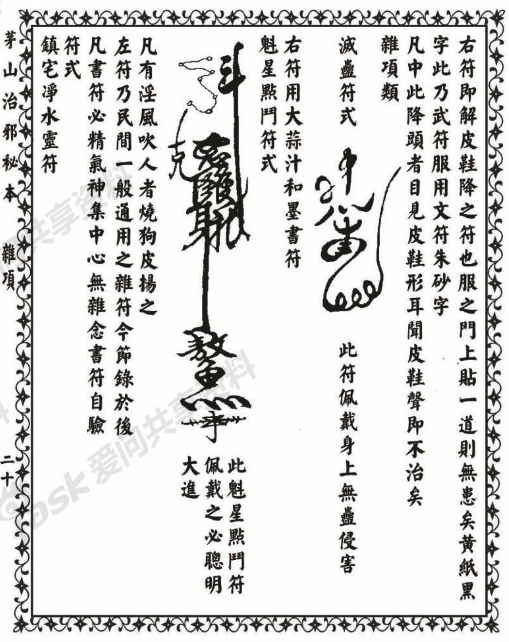 右符即解皮鞋降之符也服之門上貼一道則無患矣黃紙黑
字此乃武符服用文符朱砂字
凡中此降頭者目見皮鞋形耳聞皮鞋聲即不治矣
雜項類
滅蠱符式
此符佩戴身上無蠱侵害
右符用大蒜汁和墨書符
魁星點鬥符式
此魁星點鬥符
佩戴之必聰明
大進
凡有淫風吹人者燒狗皮揚之
左符乃民間一般通用之雜符今節錄於後
凡書符必精氣神集中心無雜念書符自驗
符式
鎮宅淨水靈符
茅山治邪秘本 雜項 二十
ask 爱问共享资料